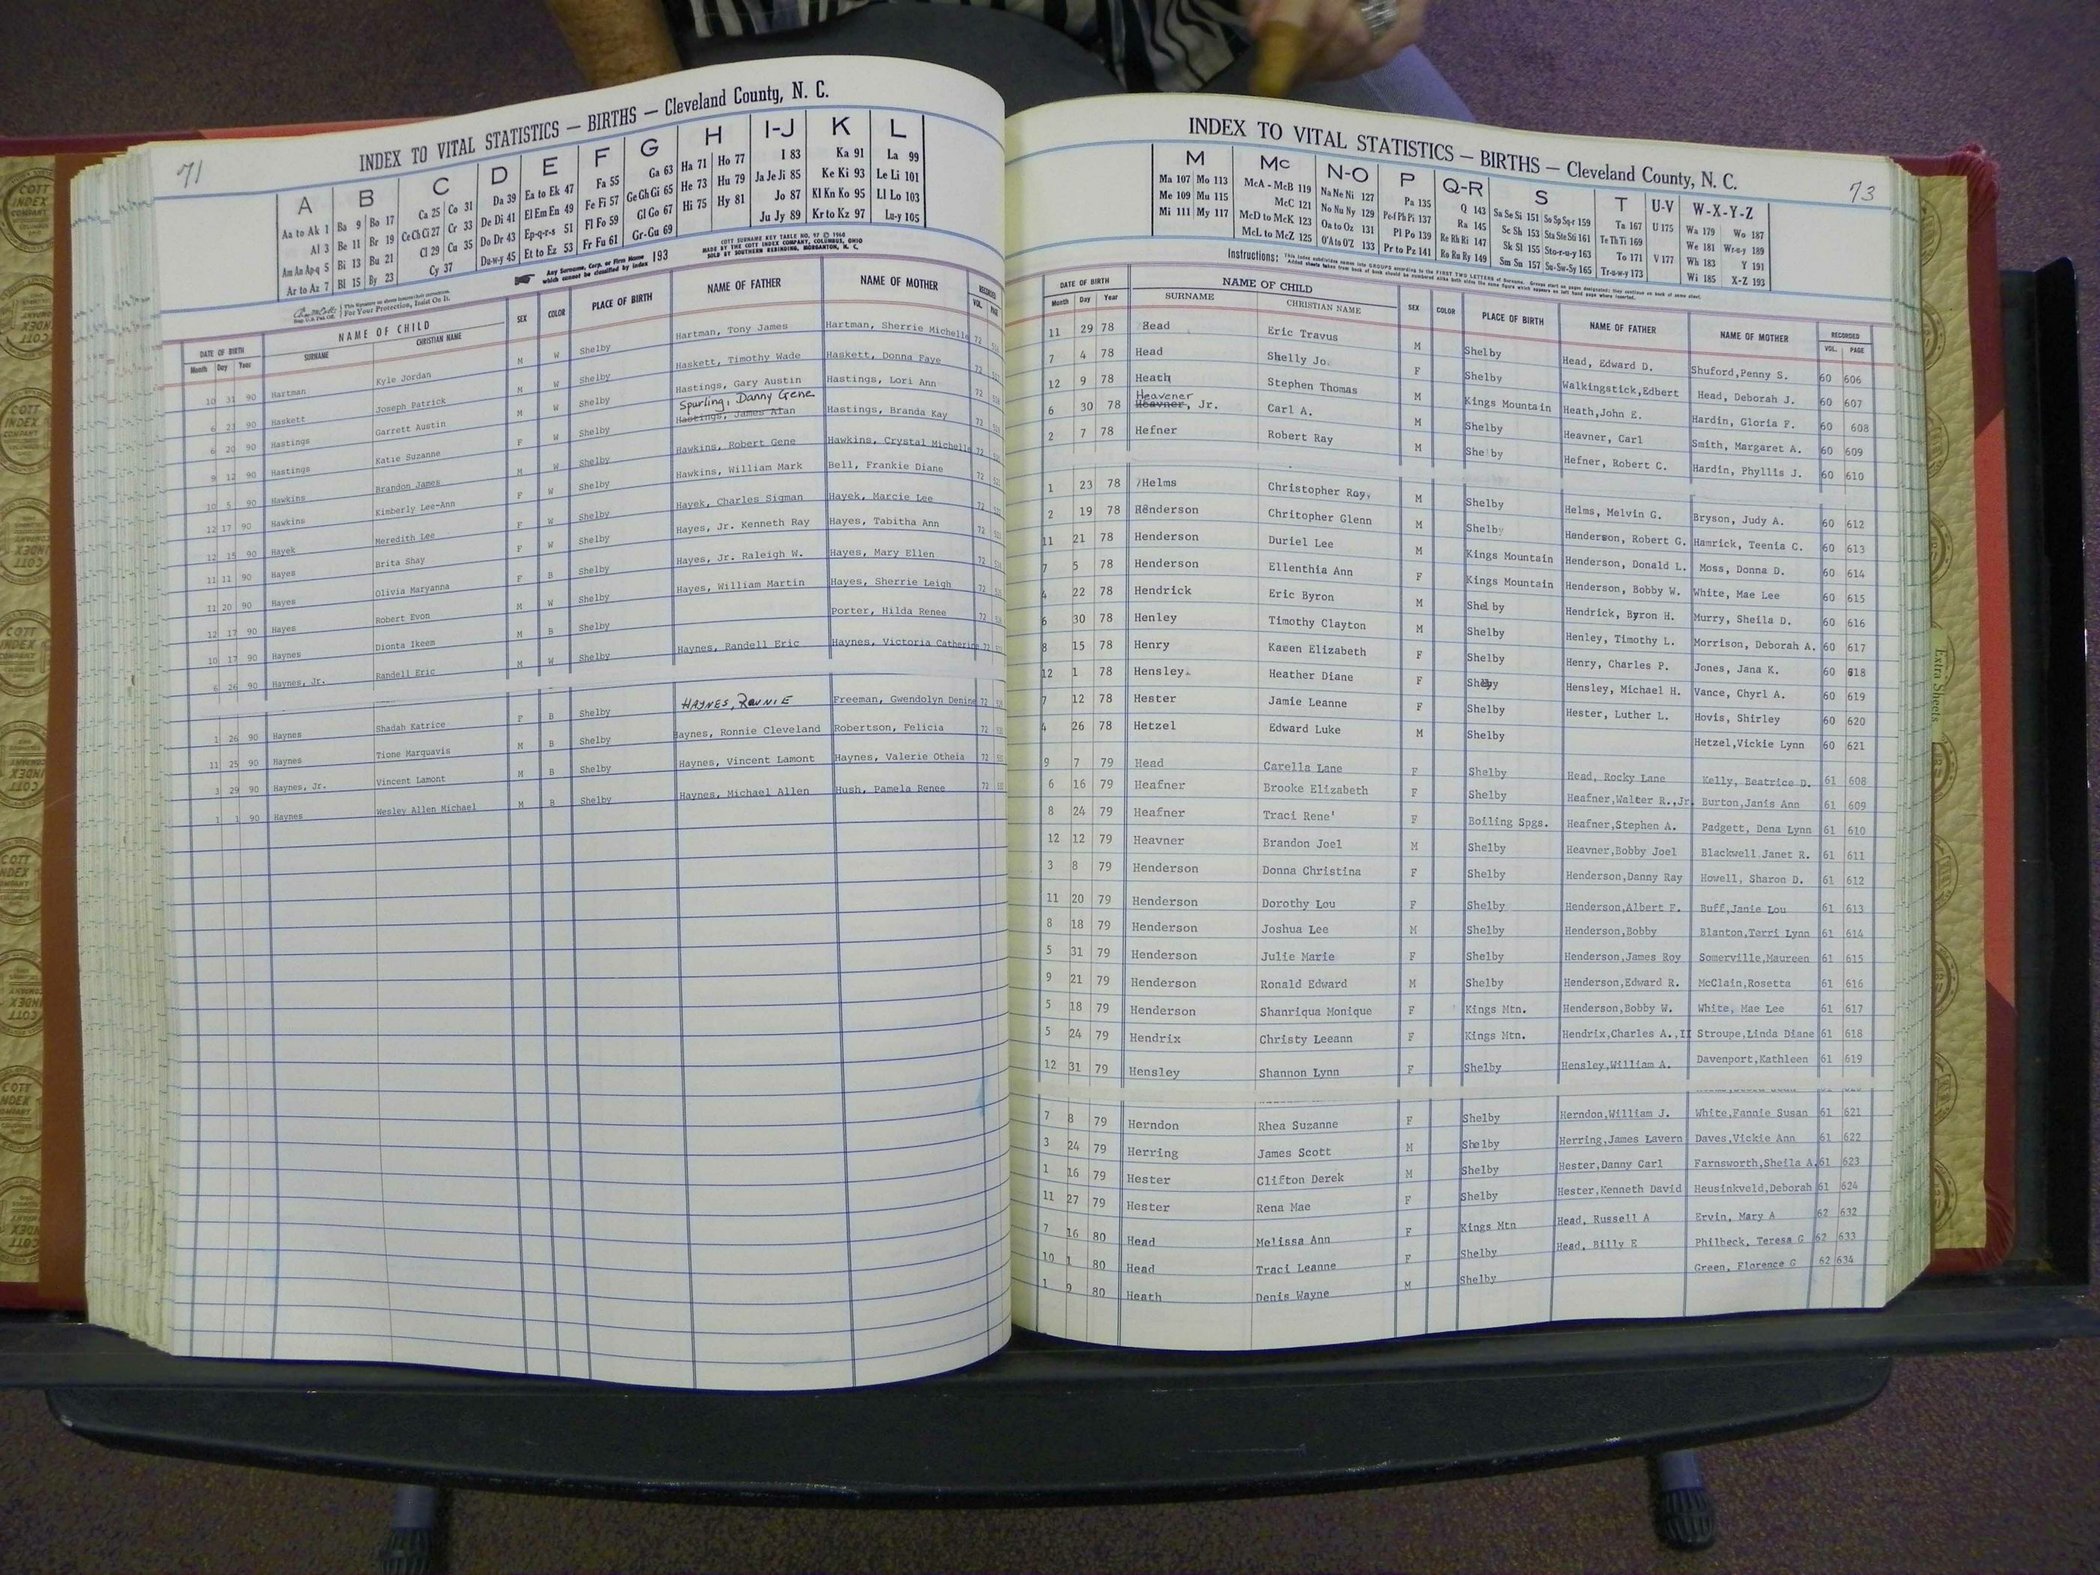 71
INDEX TO VITAL STATISTICS — BIRTHS — Cleveland County, N. C.
A B C D E F G H I-J K L
Aa to Ak 1 Ba 9 Bo 17 Ca 25 Co 31 Da 39 Ea to Ek 47 Fa 55 Ga 63 Ha 71 Ho 77 I 83 Ka 91 La 99
Al 3 Be 11 Br 19 Ce Ch Ci 27 Cr 33 De Di 41 El Em En 49 Fe Fi 57 Ge Gh Gi 65 He 73 Hu 79 Ja Je Ji 85 Ke Ki 93 Le Li 101
Am An Ap-q 5 Bi 13 Bu 21 Cl 29 Cu 35 Do Dr 43 Ep-q-r-s 51 Fl Fo 59 Gl Go 67 Hi 75 Hy 81 Jo 87 Kl Kn Ko 95 Ll Lo 103
Ar to Az 7 Bl 15 By 23 Cy 37 Du-w-y 45 Et to Ez 53 Fr Fu 61 Gr-Gu 69 Ju Jy 89 Kr to Kz 97 Lu-y 105
COTT SURNAME KEY TABLE NO. 97 © 1960
MADE BY THE COTT INDEX COMPANY, COLUMBUS, OHIO
SOLD BY SOUTHERN REBINDING, MORGANTON, N. C.
Any Surname, Corp. or Firm Name which cannot be classified by index 193
For Your Protection, Insist On It.
DATE OF BIRTH NAME OF CHILD SEX COLOR PLACE OF BIRTH NAME OF FATHER NAME OF MOTHER RECORDED
Month Day Year SURNAME CHRISTIAN NAME VOL. PAGE
10 31 90 Hartman Kyle Jordan M W Shelby Hartman, Tony James Hartman, Sherrie Michelle 72
6 23 90 Haskett Joseph Patrick M W Shelby Haskett, Timothy Wade Haskett, Donna Faye 72
6 20 90 Hastings Garrett Austin M W Shelby Hastings, Gary Austin Hastings, Lori Ann 72
Spurling, Danny Gene
9 12 90 Hastings Katie Suzanne F W Shelby Hastings, James Alan Hastings, Branda Kay 72
10 5 90 Hawkins Brandon James M W Shelby Hawkins, Robert Gene Hawkins, Crystal Michelle 72
12 17 90 Hawkins Kimberly Lee-Ann F W Shelby Hawkins, William Mark Bell, Frankie Diane 72
12 15 90 Hayek Meredith Lee F W Shelby Hayek, Charles Sigman Hayek, Marcie Lee 72
11 11 90 Hayes Brita Shay F W Shelby Hayes, Jr. Kenneth Ray Hayes, Tabitha Ann 72
11 20 90 Hayes Olivia Maryanna F B Shelby Hayes, Jr. Raleigh W. Hayes, Mary Ellen 72
12 17 90 Hayes Robert Evon M W Shelby Hayes, William Martin Hayes, Sherrie Leigh 72
10 17 90 Haynes Dionta Ikeem M B Shelby Porter, Hilda Renee 72
6 26 90 Haynes, Jr. Randell Eric M W Shelby Haynes, Randell Eric Haynes, Victoria Catherine 72
1 26 90 Haynes Shadah Katrice F B Shelby HAYNES, RONNIE Freeman, Gwendolyn Denine 72
11 25 90 Haynes Tione Marquavis M B Shelby Haynes, Ronnie Cleveland Robertson, Felicia 72
3 29 90 Haynes, Jr. Vincent Lamont M B Shelby Haynes, Vincent Lamont Haynes, Valerie Otheia 72
1 1 90 Haynes Wesley Allen Michael M B Shelby Haynes, Michael Allen Hush, Pamela Renee 72
73
INDEX TO VITAL STATISTICS — BIRTHS — Cleveland County, N. C.
M Mc N-O P Q-R S T U-V W-X-Y-Z
Ma 107 Mo 113 McA - McB 119 Na Ne Ni 127 Pa 135 Q 143 Sa Se Si 151 So Sp Sq-r 159 Ta 167 U 175 Wa 179 Wo 187
Me 109 Mu 115 McC 121 No Nu Ny 129 Pe-f Ph Pi 137 Ra 145 Sc Sh 153 Sta Ste Sti 161 Te Th Ti 169 We 181 Wr-u-y 189
Mi 111 My 117 McD to McK 123 Oa to Oz 131 Pl Po 139 Re Rh Ri 147 Sk Sl 155 Sto-r-u-y 163 To 171 V 177 Wh 183 Y 191
McL to McZ 125 O'A to O'Z 133 Pr to Pz 141 Ro Ru Ry 149 Sm Sn 157 Su-Sw-Sy 165 Tr-u-w-y 173 Wi 185 X-Z 193
Instructions: This index subdivides names into GROUPS according to the FIRST TWO LETTERS of Surname. Groups start on pages designated; they continue on back of same sheet.
Added sheets taken from back of book should be numbered alike both sides the same figure which appears on left hand page where inserted.
DATE OF BIRTH NAME OF CHILD SEX COLOR PLACE OF BIRTH NAME OF FATHER NAME OF MOTHER RECORDED
Month Day Year SURNAME CHRISTIAN NAME VOL. PAGE
11 29 78 Head Eric Travus M Shelby Head, Edward D. Shuford,Penny S. 60 606
7 4 78 Head Shelly Jo. F Shelby Walkingstick,Edbert Head, Deborah J. 60 607
12 9 78 Heath Stephen Thomas M Kings Mountain Heath,John E. Hardin, Gloria F. 60 608
Heavener
6 30 78 Heavner, Jr. Carl A. M Shelby Heavner, Carl Smith, Margaret A. 60 609
2 7 78 Hefner Robert Ray M Shelby Hefner, Robert C. Hardin, Phyllis J. 60 610
1 23 78 Helms Christopher Roy, M Shelby Helms, Melvin G. Bryson, Judy A. 60 612
2 19 78 Henderson Chritopher Glenn M Shelby Henderson, Robert G. Hamrick, Teenia C. 60 613
11 21 78 Henderson Duriel Lee M Kings Mountain Henderson, Donald L. Moss, Donna D. 60 614
7 5 78 Henderson Ellenthia Ann F Kings Mountain Henderson, Bobby W. White, Mae Lee 60 615
4 22 78 Hendrick Eric Byron M Shelby Hendrick, Byron H. Murry, Sheila D. 60 616
6 30 78 Henley Timothy Clayton M Shelby Henley, Timothy L. Morrison, Deborah A. 60 617
8 15 78 Henry Karen Elizabeth F Shelby Henry, Charles P. Jones, Jana K. 60 618
12 1 78 Hensley Heather Diane F Shelby Hensley, Michael H. Vance, Chyrl A. 60 619
7 12 78 Hester Jamie Leanne F Shelby Hester, Luther L. Hovis, Shirley 60 620
4 26 78 Hetzel Edward Luke M Shelby Hetzel,Vickie Lynn 60 621
9 7 79 Head Carella Lane F Shelby Head, Rocky Lane Kelly, Beatrice D. 61 608
6 16 79 Heafner Brooke Elizabeth F Shelby Heafner,Walter R.,Jr. Burton,Janis Ann 61 609
8 24 79 Heafner Traci Rene' F Boiling Spgs. Heafner,Stephen A. Padgett, Dena Lynn 61 610
12 12 79 Heavner Brandon Joel M Shelby Heavner,Bobby Joel Blackwell Janet R. 61 611
3 8 79 Henderson Donna Christina F Shelby Henderson,Danny Ray Howell, Sharon D. 61 612
11 20 79 Henderson Dorothy Lou F Shelby Henderson,Albert F. Buff,Janie Lou 61 613
8 18 79 Henderson Joshua Lee M Shelby Henderson,Bobby Blanton,Terri Lynn 61 614
5 31 79 Henderson Julie Marie F Shelby Henderson,James Roy Somerville,Maureen 61 615
9 21 79 Henderson Ronald Edward M Shelby Henderson,Edward R. McClain,Rosetta 61 616
5 18 79 Henderson Shanriqua Monique F Kings Mtn. Henderson,Bobby W. White, Mae Lee 61 617
5 24 79 Hendrix Christy Leeann F Kings Mtn. Hendrix,Charles A.,II Stroupe,Linda Diane 61 618
12 31 79 Hensley Shannon Lynn F Shelby Hensley,William A. Davenport,Kathleen 61 619
7 8 79 Herndon Rhea Suzanne F Shelby Herndon,William J. White,Fannie Susan 61 621
3 24 79 Herring James Scott M Shelby Herring,James Lavern Daves,Vickie Ann 61 622
1 16 79 Hester Clifton Derek M Shelby Hester,Danny Carl Farnsworth,Sheila A. 61 623
11 27 79 Hester Rena Mae F Shelby Hester,Kenneth David Heusinkveld,Deborah 61 624
7 16 80 Head Melissa Ann F Kings Mtn Head, Russell A Ervin, Mary A 62 632
10 1 80 Head Traci Leanne F Shelby Head, Billy E Philbeck, Teresa G 62 633
1 9 80 Heath Denis Wayne M Shelby Green, Florence G 62 634
Extra Sheets